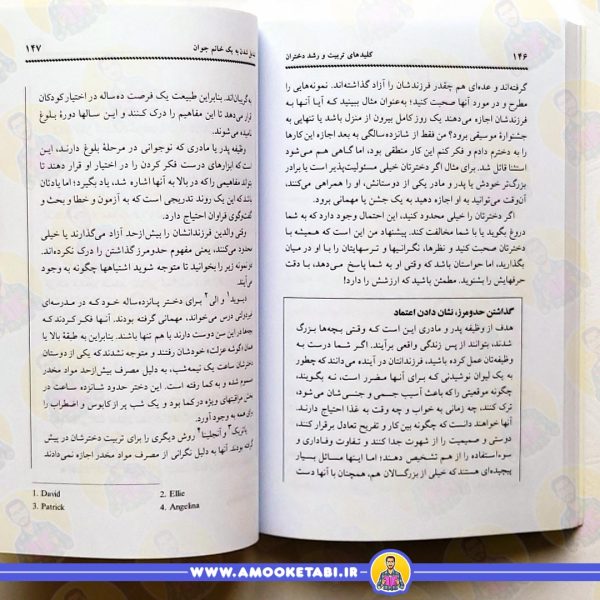 ۱۴۶
کلیدهای تربیت و رشد دختران
گرفته‌اند و عده‌ای هم چقدر فرزندشان را آزاد گذاشته‌اند. نمونه‌هایی را
مطرح و در مورد آنها صحبت کنید؛ به‌عنوان مثال ببینید که آیا آنها به
فرزندشان اجازه می‌دهند یک روز کامل بیرون از منزل باشد یا تنهایی به
جشنوارهٔ موسیقی برود؟ من فقط از شانزده‌سالگی به بعد اجازه این کارها
را به دخترم دادم و فکر کنم این کار منطقی بود، اما گاهی هم می‌شود
استثنا قائل شد. برای مثال اگر دخترتان خیلی مسئولیت‌پذیر است یا برادر
بزرگ‌تر خودش یا پدر و مادر یکی از دوستانش، او را همراهی می‌کنند،
آن‌وقت می‌توانید به او اجازه دهید به یک جشن یا مهمانی برود.
اگر دخترتان را خیلی محدود کنید، این احتمال وجود دارد که به شما
دروغ بگوید یا با شما مخالفت کند. پیشنهاد من این است که همیشه با
دخترتان صحبت کنید و نظرها، نگرانیها و ترسهایتان را با او در میان
بگذارید، اما حواستان باشد که وقتی او به شما پاسخ می‌دهد، با دقت
حرفهایش را بشنوید. مطمئن باشید که ارزشش را دارد!
گذاشتن حدومرز، نشان دادن اعتماد
هدف از وظیفه پدر و مادری این است که وقتی بچه‌ها بزرگ
شدند، بتوانند از پس زندگی واقعی برآیند. اگر شما درست به
وظیفه‌تان عمل کرده باشید، فرزندانتان در آینده می‌دانند که چطور
به یک لیوان نوشیدنی که برای آنها مضر است، نه بگویند،
چگونه موقعیتی را که باعث آسیب جسمی و جنسی شان می‌شود،
ترک کنند، چه زمانی به خواب و چه وقت به غذا احتیاج دارند.
آنها خواهند دانست که چگونه بین کار و تفریح تعادل برقرار کنند،
دوستی و صمیمیت را از شهوت جدا کنند و تفاوت وفاداری و
سوءاستفاده را از هم تشخیص دهند؛ اما اینها مسائل بسیار
پیچیده‌ای هستند که خیلی از بزرگسالان هم، همچنان با آنها دست
شدن به یک خانم جوان
۱۴۷
به‌گریبان‌اند. بنابراین طبیعت یک فرصت ده‌ساله در اختیار کودکان
قرار می‌دهد تا این مفاهیم را درک کنند و این سالها دورهٔ بلوغ
نامیده می‌شوند.
وظیفه پدر یا مادری که نوجوانی در مرحلهٔ بلوغ دارند، این
است که ابزارهای درست فکر کردن را در اختیار او قرار دهند تا
بتواند مفاهیمی را که در بالا به آنها اشاره شد، یاد بگیرد؛ اما یادتان
باشد که این یک روند تدریجی است که به آزمون و خطا و بحث و
گفت‌وگوی فراوان احتیاج دارد.
وقتی والدین فرزندانشان را بیش‌ازحد آزاد می‌گذارند یا خیلی
محدود می‌کنند، یعنی مفهوم حدومرز گذاشتن را درک نکرده‌اند.
نمونه زیر را بخوانید تا متوجه شوید اشتباهها چگونه به وجود
می‌آیند.
دیوید۱ و الی۲ برای دختر پانزده‌ساله خود که در مدرسه‌ای
غیردولتی درس می‌خواند، مهمانی گرفته بودند. آنها فکر کردند که
بچه‌ها در این سن دوست دارند با هم تنها باشند. بنابراین به طبقهٔ بالا یا
همان «گوشه عزلت» خودشان رفتند و متوجه نشدند که یکی از دوستان
دخترشان ساعت یک نیمه‌شب، به دلیل مصرف بیش‌ازحد مواد مخدر
مسموم شده و به کما رفته است. این دختر حدود شانزده ساعت در
بخش مراقبتهای ویژه در کما بود و یک شب پر از کابوس و اضطراب را
برای همه به وجود آورد.
پاتریک۳ و آنجلینا۴ روش دیگری را برای تربیت دخترشان در پیش
گرفته بودند. آنها به دلیل نگرانی از مصرف مواد مخدر اجازه نمی‌دادند
1. David
2. Ellie
3. Patrick
4. Angelina
WWW.AMOOKETABI.IR